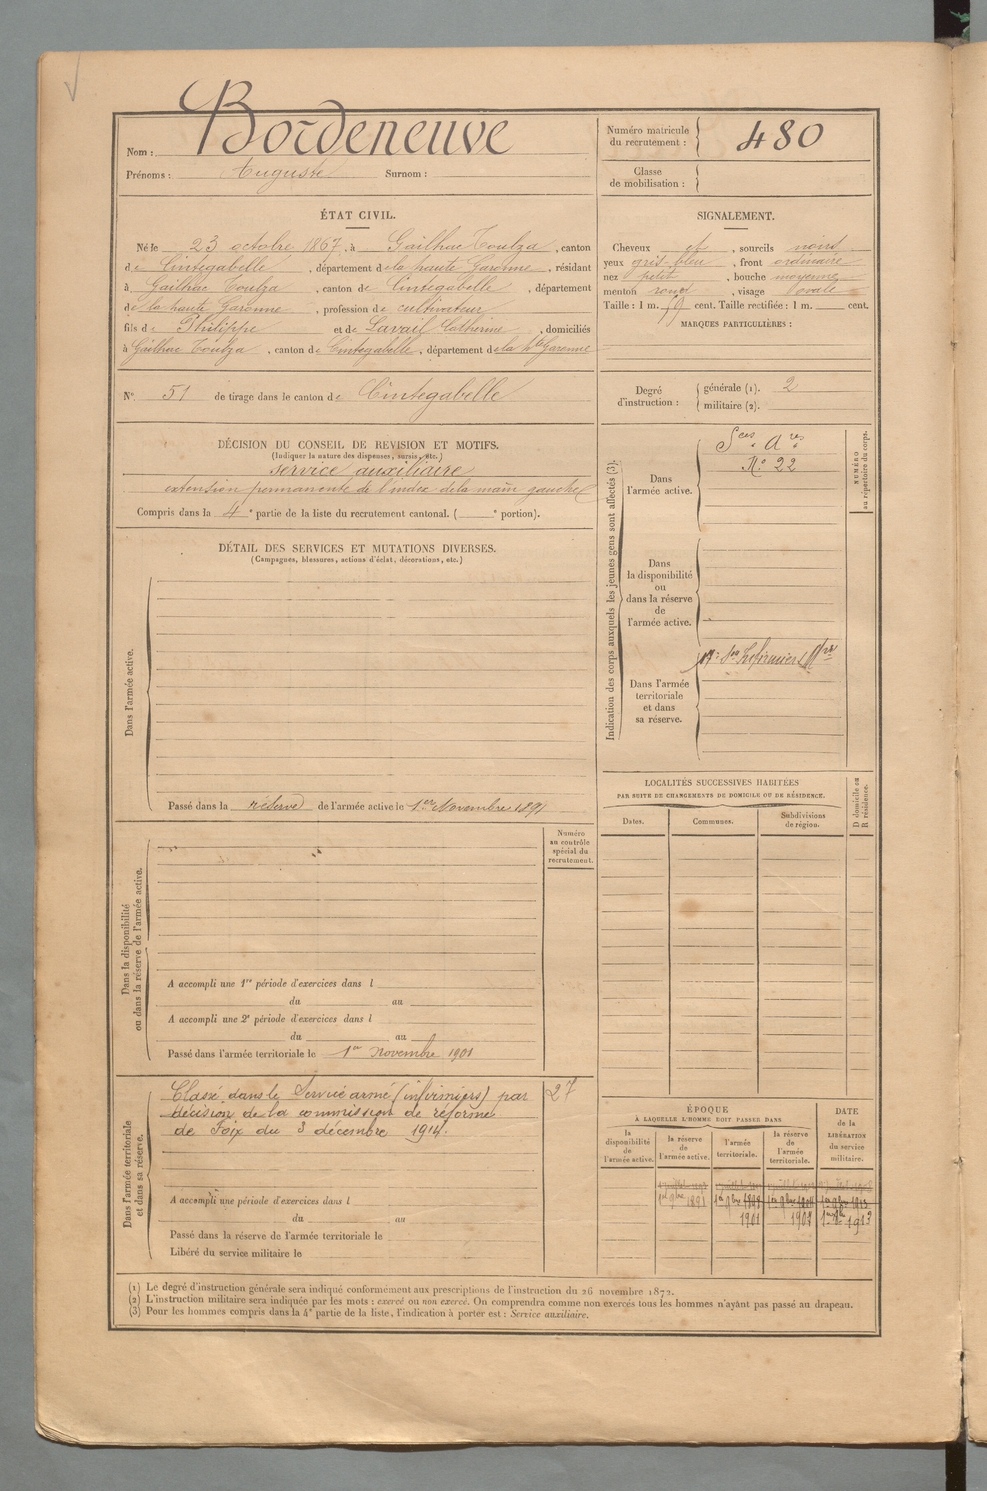 Nom : Bordeneuve
Prénoms : Auguste Surnom :
Numéro matricule du recrutement : 480
Classe de mobilisation :
ÉTAT CIVIL.
Né le 23 octobre 1867, à Gailhac Toulza, canton
de Cintegabelle, département de la haute Garonne, résidant
à Gailhac Toulza, canton de Cintegabelle, département
de la haute Garonne, profession de cultivateur
fils de Philippe et de Lavail Catherine, domiciliés
à Gailhac Toulza, canton de Cintegabelle, département de la hte Garonne
SIGNALEMENT.
Cheveux et, sourcils noirs
yeux gris bleu, front ordinaire
nez petit, bouche moyenne
menton rond, visage ovale
Taille : 1 m. cent. Taille rectifiée : 1 m. cent.
MARQUES PARTICULIÈRES :
N° 51 de tirage dans le canton de Cintegabelle
Degré d'instruction :
générale (1). 2
militaire (2).
DÉCISION DU CONSEIL DE REVISION ET MOTIFS.
(Indiquer la nature des dispenses, sursis, etc.)
service auxiliaire
extension permanente de l'index de la main gauche
Compris dans la 4e partie de la liste du recrutement cantonal. ( e portion).
DÉTAIL DES SERVICES ET MUTATIONS DIVERSES.
(Campagnes, blessures, actions d'éclat, décorations, etc.)
Dans l'armée active.
Passé dans la réserve de l'armée active le 1er Novembre 1891
Indication des corps auxquels les jeunes gens sont affectés (3).
Dans l'armée active.
Sces Ares
N° 22
NUMÉRO au répertoire du corps.
Dans la disponibilité ou dans la réserve de l'armée active.
Dans l'armée territoriale et dans sa réserve.
LOCALITÉS SUCCESSIVES HABITÉES
PAR SUITE DE CHANGEMENTS DE DOMICILE OU DE RÉSIDENCE.
Dates. Communes. Subdivisions de région.
D domicile ou R résidence.
Numéro au contrôle spécial du recrutement.
Dans la disponibilité ou dans la réserve de l'armée active.
A accompli une 1re période d'exercices dans l
du au
A accompli une 2e période d'exercices dans l
du au
Passé dans l'armée territoriale le 1er novembre 1901
Dans l'armée territoriale et dans sa réserve.
Classé dans le Service armé (infirmiers) par 27
décision de la commission de réforme
de Foix du 3 décembre 1914.
A accompli une période d'exercices dans l
du au
Passé dans la réserve de l'armée territoriale le
Libéré du service militaire le
ÉPOQUE
À LAQUELLE L'HOMME DOIT PASSER DANS
la disponibilité de l'armée active.
la réserve de l'armée active.
l'armée territoriale.
la réserve de l'armée territoriale.
DATE de la LIBÉRATION du service militaire.
1er 9bre 1891
1901 1907 1913
(1) Le degré d'instruction générale sera indiqué conformément aux prescriptions de l'instruction du 26 novembre 1872.
(2) L'instruction militaire sera indiquée par les mots : exercé ou non exercé. On comprendra comme non exercés tous les hommes n'ayant pas passé au drapeau.
(3) Pour les hommes compris dans la 4e partie de la liste, l'indication à porter est : Service auxiliaire.